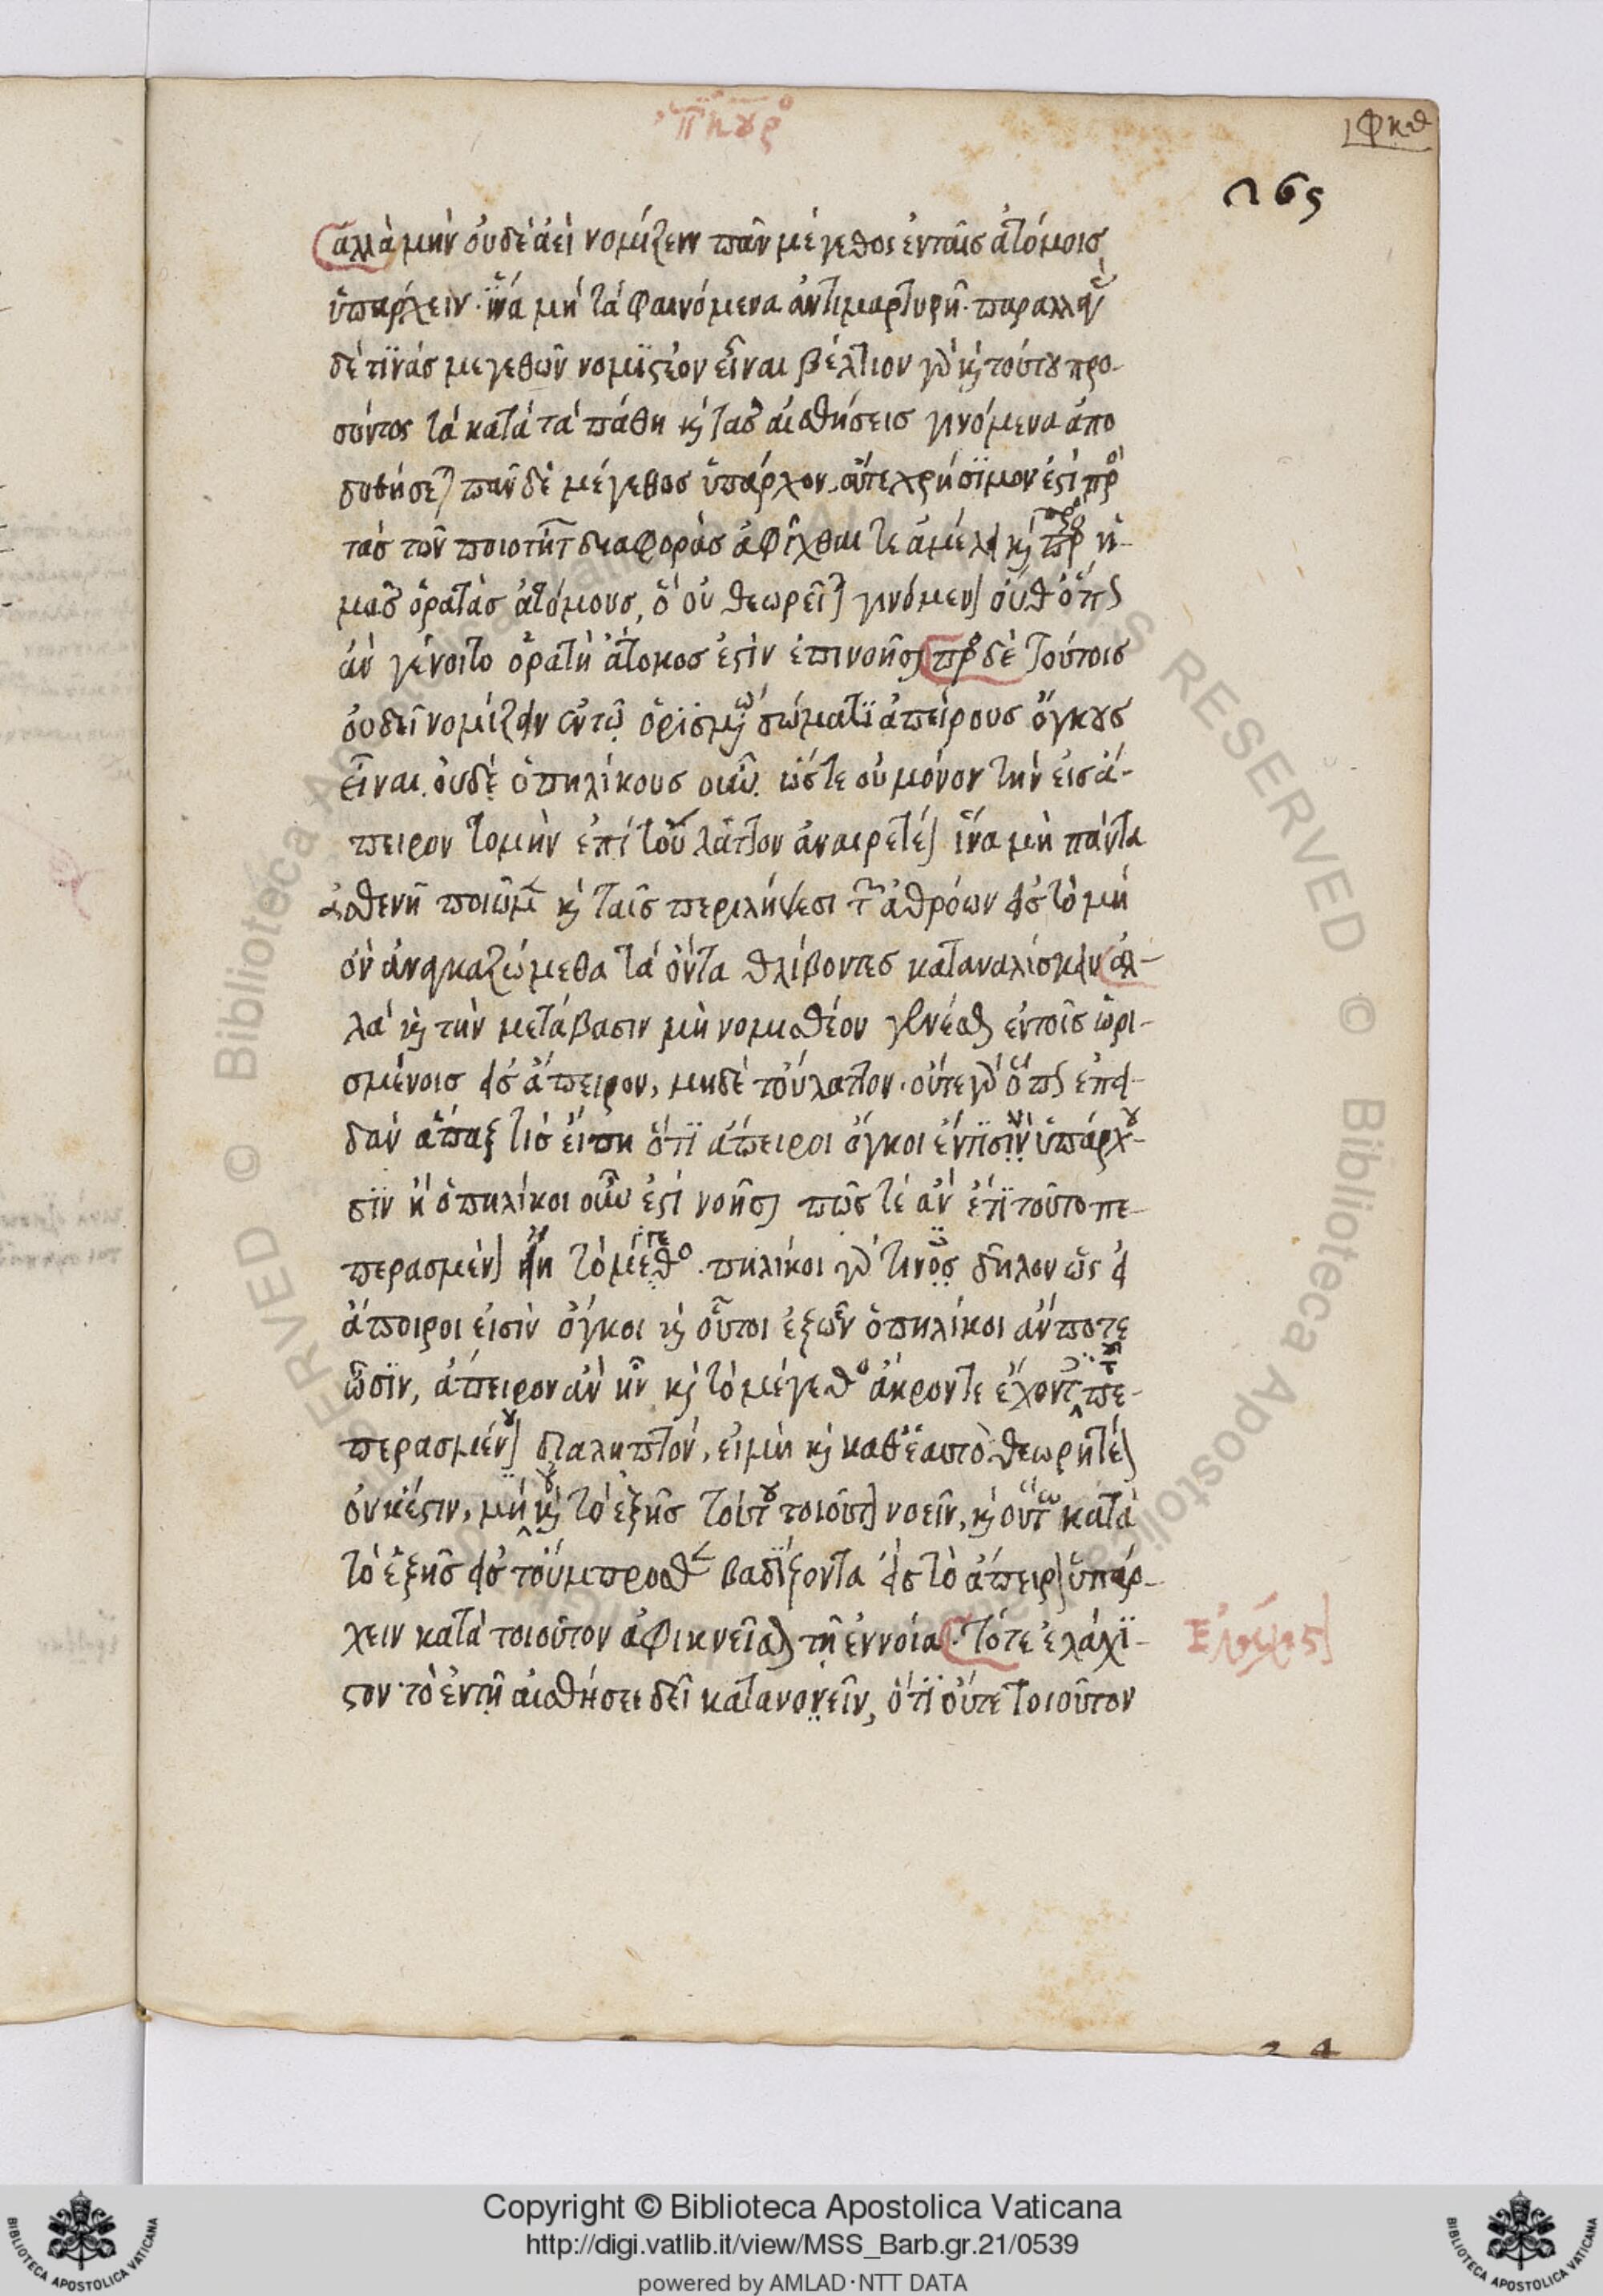 ἐπικουρο
φκθ
265
ἀλλὰ μὴν οὐδὲ ἀεὶ νομίζειν πᾶν μέγεθος ἐν ταῖς ἀτόμοις
ὑπάρχειν· ἵνα μὴ τὰ φαινόμενα ἀντιμαρτυρῆ· παραλλαγ
δὲ τινὰς μεγεθῶν νομιστέον εἶναι βέλτιον γὰρ καὶ τούτου προ-
σόντος τὰ κατὰ τὰ πάθη καὶ τὰς αἰσθήσεις γινόμενα ἀπο
δοθήσεται πᾶν δὲ μέγεθος ὑπάρχον οὔτε χρήσιμον ἐστὶ πρὸς
τὰς τῶν ποιοτήτ διαφορὰς ἀφῖχθαι τε ἀμέλει καὶ πρὸς ἡ-
μᾶς ὁρατὰς ἀτόμους, ὃ οὐ θεωρεῖται γινόμενον οὔθ' ὅπως
ἂν γένοιτο ὁρατὴ ἄτομος ἐστὶν ἐπινοῆσαι πρὸς δὲ τούτοις
οὐ δεῖ νομίζειν ἐν τῷ ὡρισμένῳ σώματι ἀπείρους ὄγκους
εἶναι. οὐδὲ ὁπηλίκους οὖν. ὥστε οὐ μόνον τὴν εἰς ἄ-
πειρον τομὴν ἐπὶ τοὔλαττον ἀναιρετέον ἵνα μὴ πάντα
ἀσθενῆ ποιῶμεν καὶ ταῖς περιλήψεσι τῶν ἀθρόων εἰς τὸ μὴ
ὂν ἀναγκαζώμεθα τὰ ὄντα θλίβοντες καταναλίσκειν ἀλ-
λὰ καὶ τὴν μετάβασιν μὴ νομισθέον γενέσθαι ἐν τοῖς ὡρι-
σμένοις εἰς ἄπειρον, μηδὲ τοὔλαττον· οὔτε γὰρ ὅπως ἐπει-
δὰν ἅπαξ τις εἴπη ὅτι ἄπειροι ὄγκοι ἔν τισιν ὑπάρχου-
σιν ἢ ὁπηλίκοι οὖν ἐστὶ νοῆσαι πῶς τε ἂν ἔτι τοῦτο πε-
περασμένον εἴη τὸ μέγεθος. πηλίκοι γάρ τινος δῆλον ὡς εἰ
ἄποιροι εἰσὶν ὄγκοι καὶ οὗτοι ἐξ ὧν ὁπηλίκοι ἄν ποτε
ὦσιν, ἄπειρον ἂν ἦν καὶ τὸ μέγεθος ἄκρον τε ἔχοντ πε-
περασμένου διαληπτόν, εἰ μὴ καὶ καθ' ἑαυτὸ θεωρητέον
οὐκ ἔστιν, μὴ καὶ τὸ ἑξῆς τούτου τοιοῦτον νοεῖν, καὶ οὕτω κατὰ
τὸ ἑξῆς εἰς τοὔμπροσθεν βαδίζοντα εἰς τὸ ἄπειρον ὑπάρ-
χειν κατὰ τοιοῦτον ἀφικνεῖσθαι τῇ ἐννοίᾳ· τό τε ἐλάχι-
στον τὸ ἐν τῇ αἰσθήσει δεῖ κατανοεῖν, ὅτι οὔτε τοιοῦτον
© Biblioteca Apostolica Vaticana ALL RIGHTS RESERVED
Copyright © Biblioteca Apostolica Vaticana
http://digi.vatlib.it/view/MSS_Barb.gr.21/0539
powered by AMLAD·NTT DATA
BIBLIOTECA APOSTOLICA VATICANA
BIBLIOTECA APOSTOLICA VATICANA